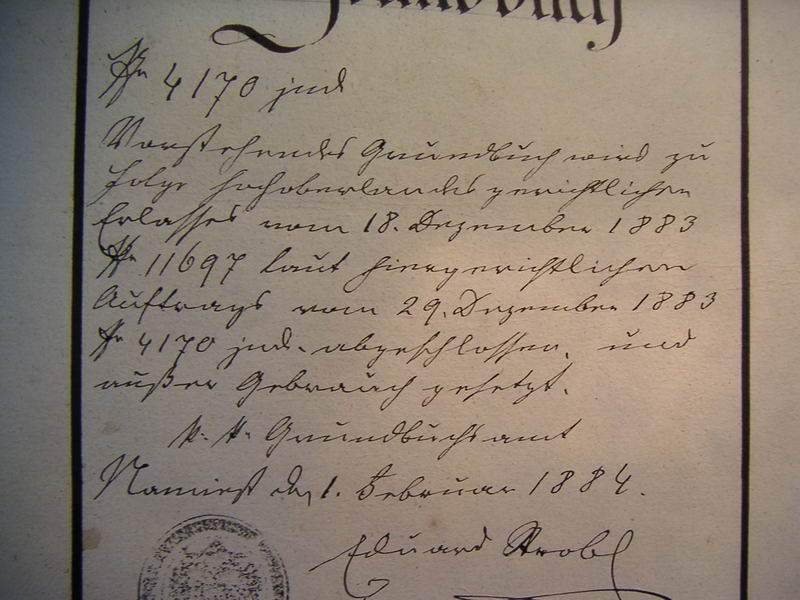 Grundbuch
Nr 4170 jud
Vorstehendes Grundbuch wird zu
folge hochoberlandesgerichtlichen
Erlasses vom 18. Dezember 1883
Nr 11697 laut hiergerichtlichen
Auftrags vom 29. Dezember 1883
Nr 4170 jud. abgeschlossen, und
außer Gebrauch gesetzt.
K. K. Grundbuchsamt
Namiest den 1. Februar 1884.
Eduard Strobl